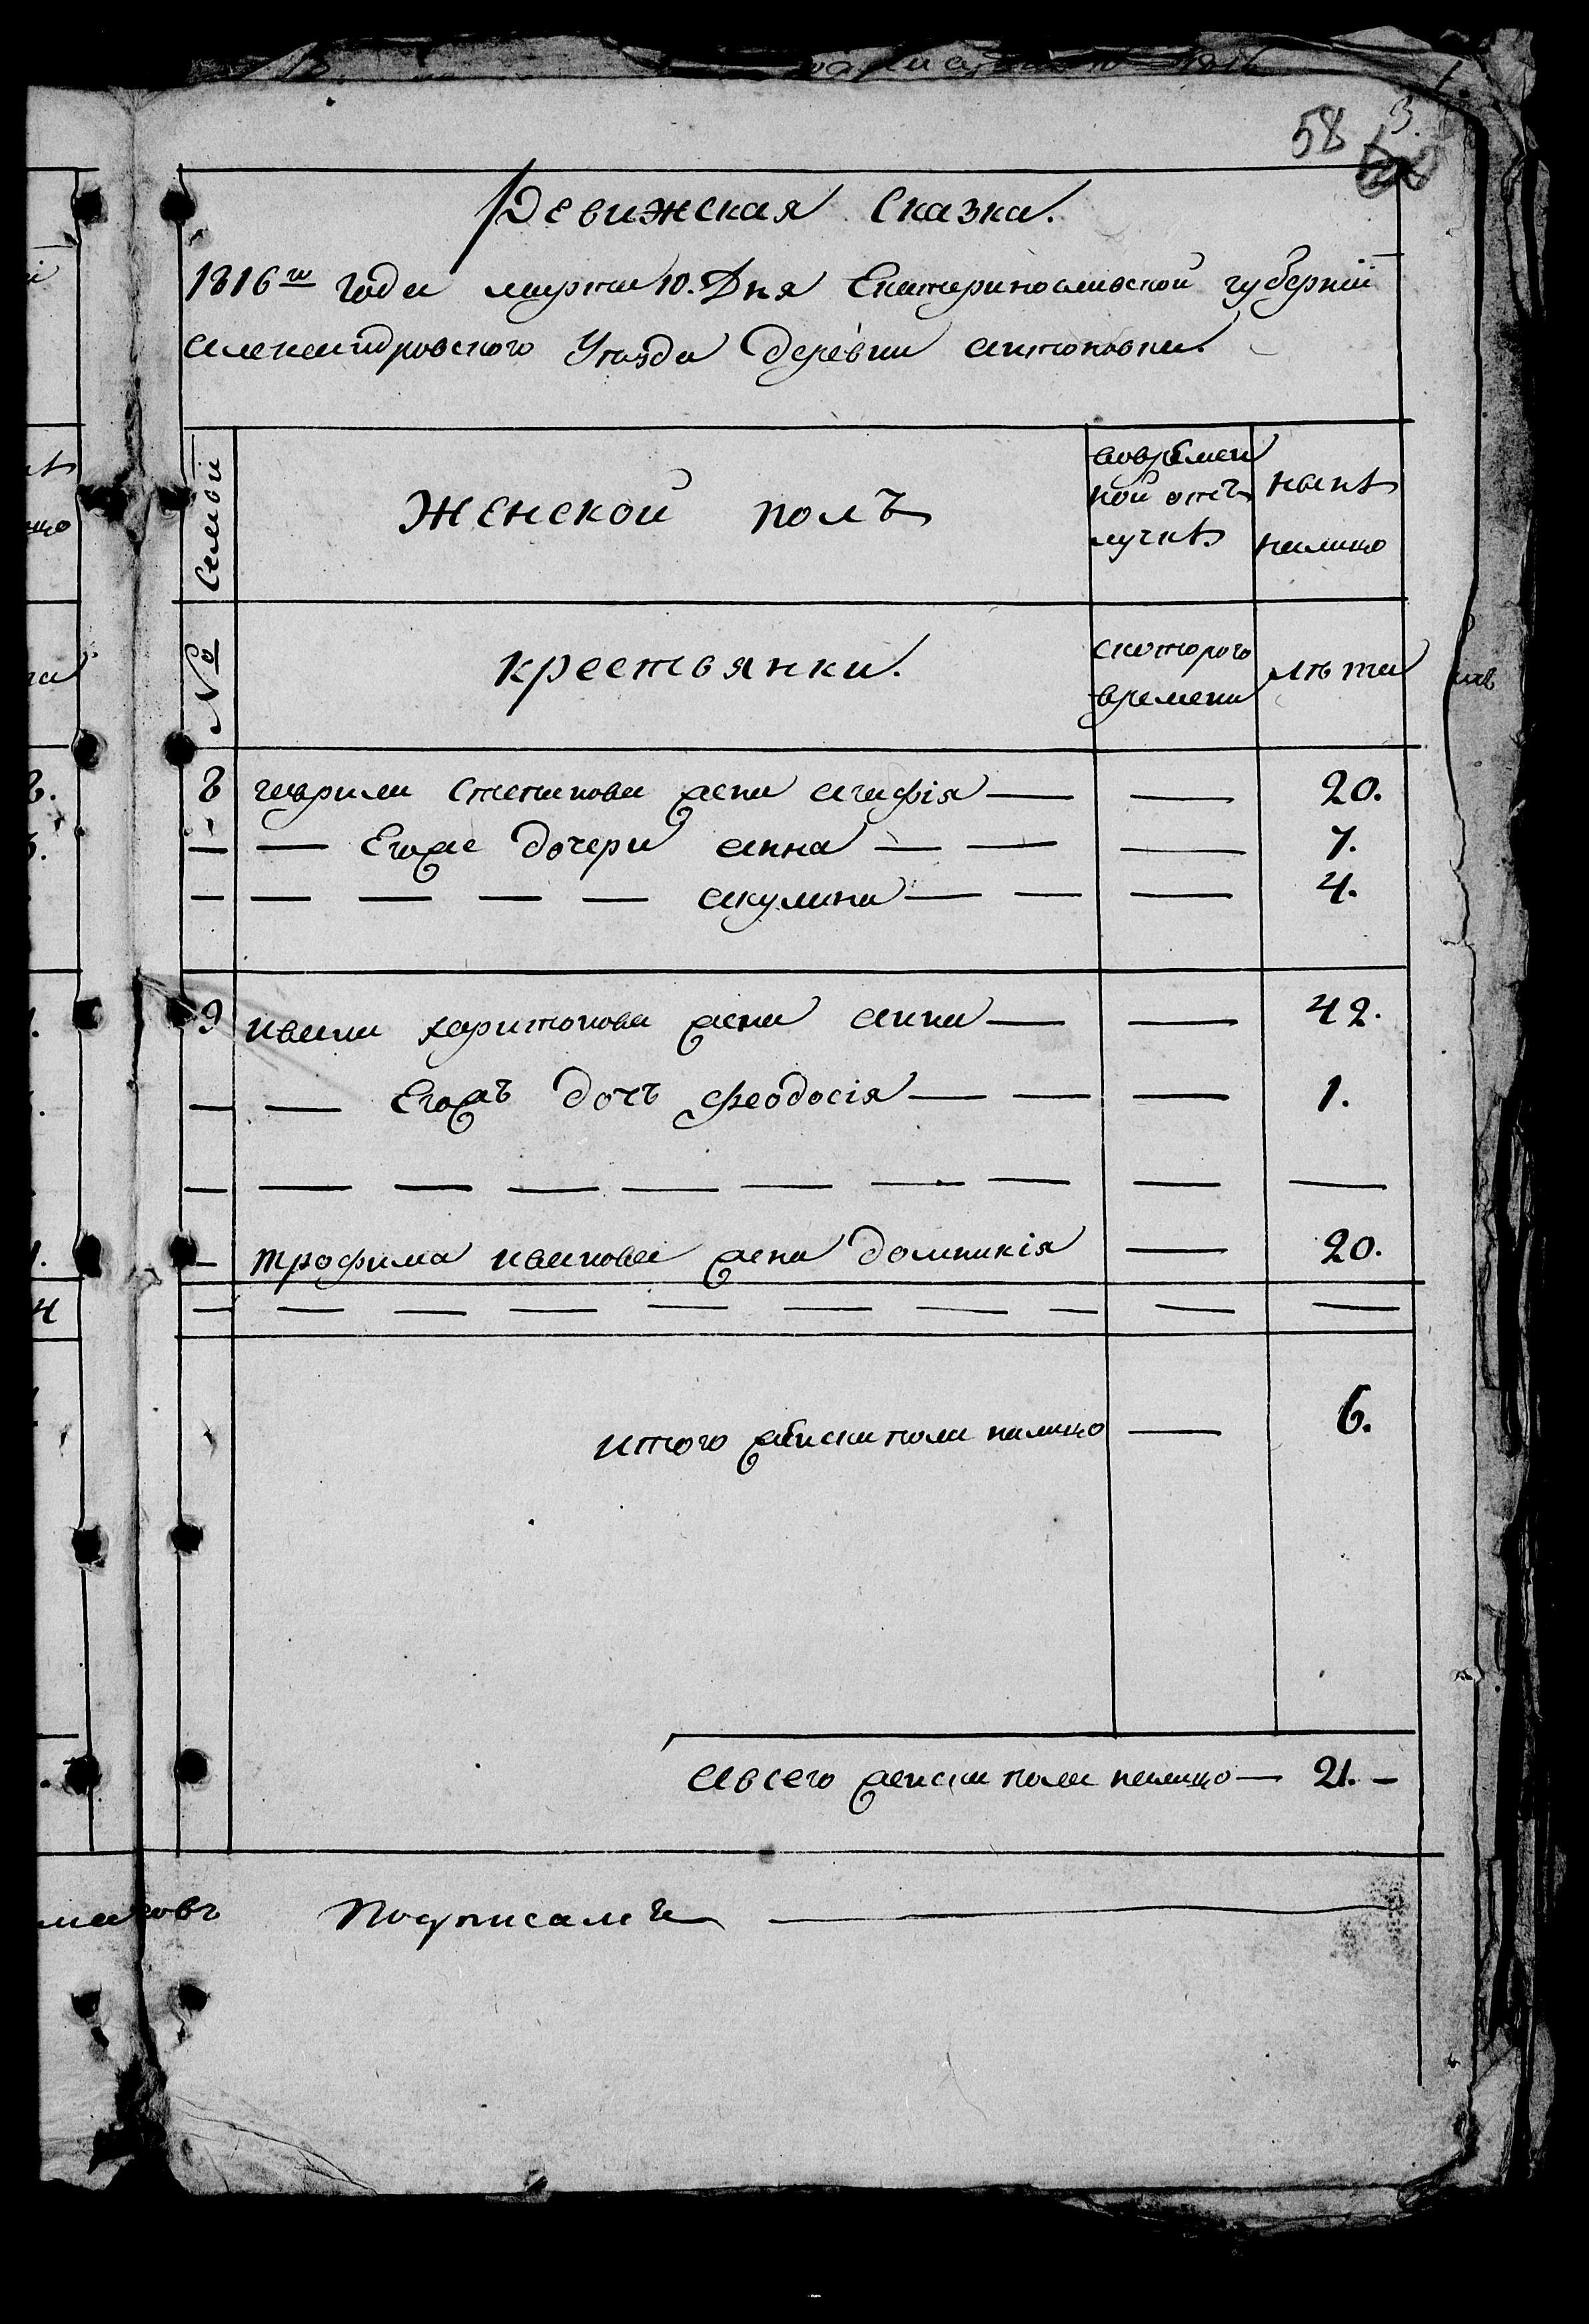 58
3.
Ревижская Сказка.
1816го Года марта 10. Дня Екатеринославской губерніи
александровского Уѣзда деревни антоновки.
№ Семьи
Женской полъ
вовремен
ной отъ
лучкѣ
нынѣ
налицо
крестьянки.
скоторого
времени
лѣта
8 гаврилы Степанова жена агафія — — 20.
— — Егоже дочери анна — — — 7.
— — — — — акулина — — — 4.
9 ивана харитонова жена анна — — 42.
— — Егожъ дочъ феодосія — — — 1.
— трофима иванова жена домникія — 20.
итого женска пола налицо — 6.
авсего женска пола налицо — 21. —
Подписалъ